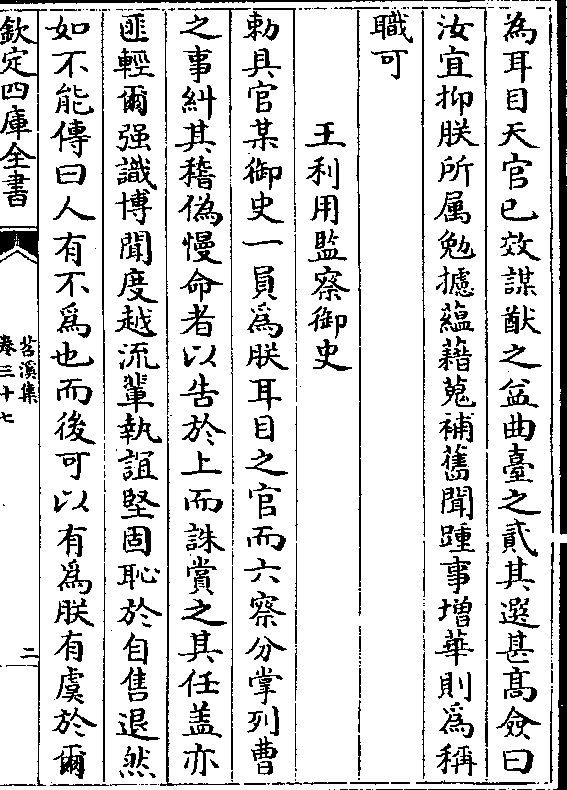 為耳目天官已效謀猷之益曲臺之貳其選甚髙僉曰
汝宜抑朕所属勉攄蘊藉蒐補舊聞踵事增華則為稱
職可
王利用監察御史
勅具官某御史一員為朕耳目之官而六察分掌列曹
之事糾其稽偽慢命者以告於上而誅賞之其任蓋亦
匪輕爾强識博聞度越流輩執誼堅固恥於自售退然
如不能傳曰人有不為也而後可以有為朕有虞於爾
欽定四庫全書
苕溪集
卷三十七
二